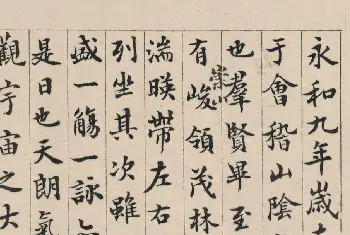 永和九年歲
于會稽山陰
也羣賢畢至
有崇山峻領茂林
湍暎帶左右
列坐其次雖
盛一觴一詠
是日也天朗氣
觀宇宙之大